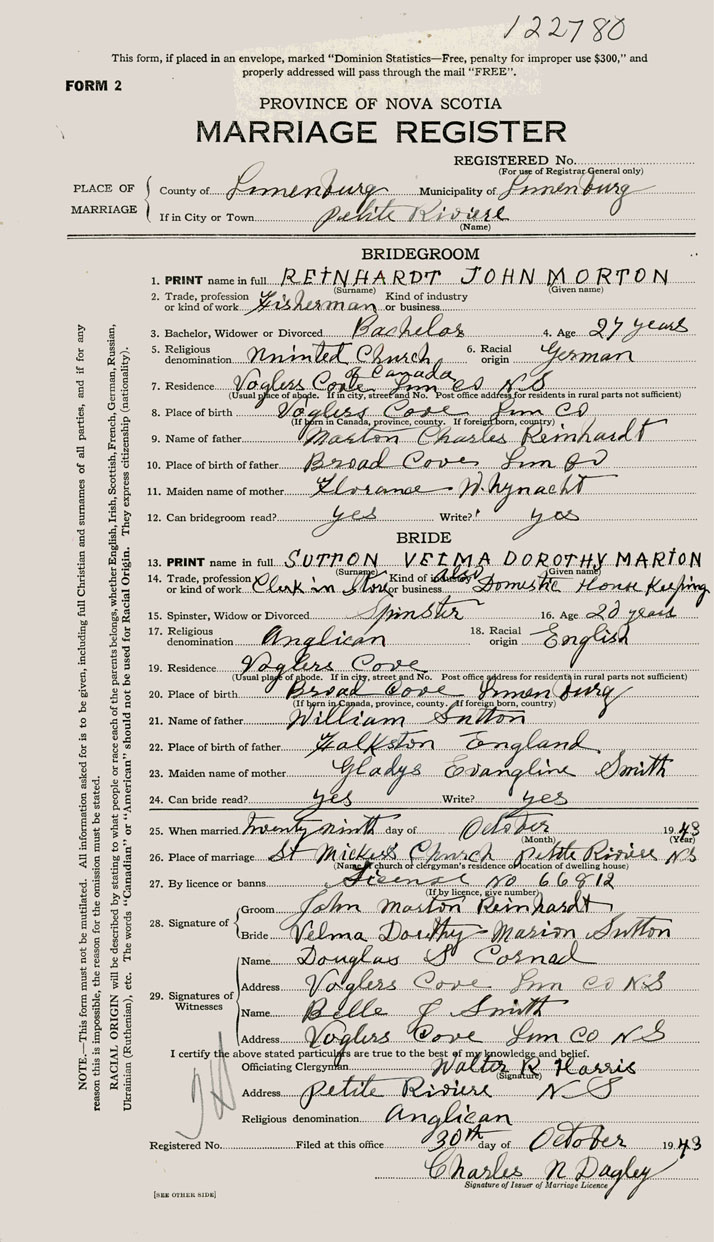 122780
This form, if placed in an envelope, marked "Dominion Statistics—Free, penalty for improper use $300," and
properly addressed will pass through the mail "FREE".
FORM 2
PROVINCE OF NOVA SCOTIA
MARRIAGE REGISTER
REGISTERED No.
(For use of Registrar General only)
PLACE OF MARRIAGE
County of Lunenburg Municipality of Lunenburg
If in City or Town Petite Riviere
(Name)
BRIDEGROOM
1. PRINT name in full REINHARDT JOHN MORTON
(Surname) (Given name)
2. Trade, profession or kind of work Fisherman Kind of industry or business
3. Bachelor, Widower or Divorced Bachelor 4. Age 27 years
5. Religious denomination Uninted Church of Canada 6. Racial origin German
7. Residence Voglers Cove Lun Co N.S
(Usual place of abode. If in city, street and No. Post office address for residents in rural parts not sufficient)
8. Place of birth Voglers Cove Lun Co
(If born in Canada, province, county. If foreign born, country)
9. Name of father Marton Charles Reinhardt
10. Place of birth of father Broad Cove Lun Co
11. Maiden name of mother Florance Whynacht
12. Can bridegroom read? yes Write? yes
BRIDE
13. PRINT name in full SUTTON VELMA DOROTHY MARION
(Surname) (Given name)
14. Trade, profession or kind of work Clerk in Store Kind of industry or business also Domestic House Keeping
15. Spinster, Widow or Divorced Spinster 16. Age 20 years
17. Religious denomination Anglican 18. Racial origin English
19. Residence Voglers Cove
(Usual place of abode. If in city, street and No. Post office address for residents in rural parts not sufficient)
20. Place of birth Broad Cove Lunenburg
(If born in Canada, province, county. If foreign born, country)
21. Name of father William Sutton
22. Place of birth of father Falkston England
23. Maiden name of mother Gladys Evangline Smith
24. Can bride read? yes Write? yes
25. When married twenty ninth day of October 1943
(Month) (Year)
26. Place of marriage St Church Petite Riviere NS
(Name of church or clergyman's residence or location of dwelling house)
27. By licence or banns License No 66812
(If by licence, give number)
28. Signature of
Groom John Marton Reinhardt
Bride Velma Dorothy Marion Sutton
29. Signatures of Witnesses
Name Douglas S Conrad
Address Voglers Cove Lun Co N.S
Name Belle J Smith
Address Voglers Cove Lun Co N S
I certify the above stated particulars are true to the best of my knowledge and belief.
Officiating Clergyman Walter R Harris
(Signature)
Address Petite Riviere N S
Religious denomination Anglican
Registered No. Filed at this office 30th day of October 1943
Charles N Dagley
Signature of Issuer of Marriage Licence
[SEE OTHER SIDE]
NOTE.—This form must not be mutilated. All information asked for is to be given, including full Christian and surnames of all parties, and if for any
reason this is impossible, the reason for the omission must be stated.
RACIAL ORIGIN will be described by stating to what people or race each of the parents belongs, whether English, Irish, Scottish, French, German, Russian,
Ukrainian (Ruthenian), etc. The words "Canadian" or "American" should not be used for Racial Origin. They express citizenship (nationality).